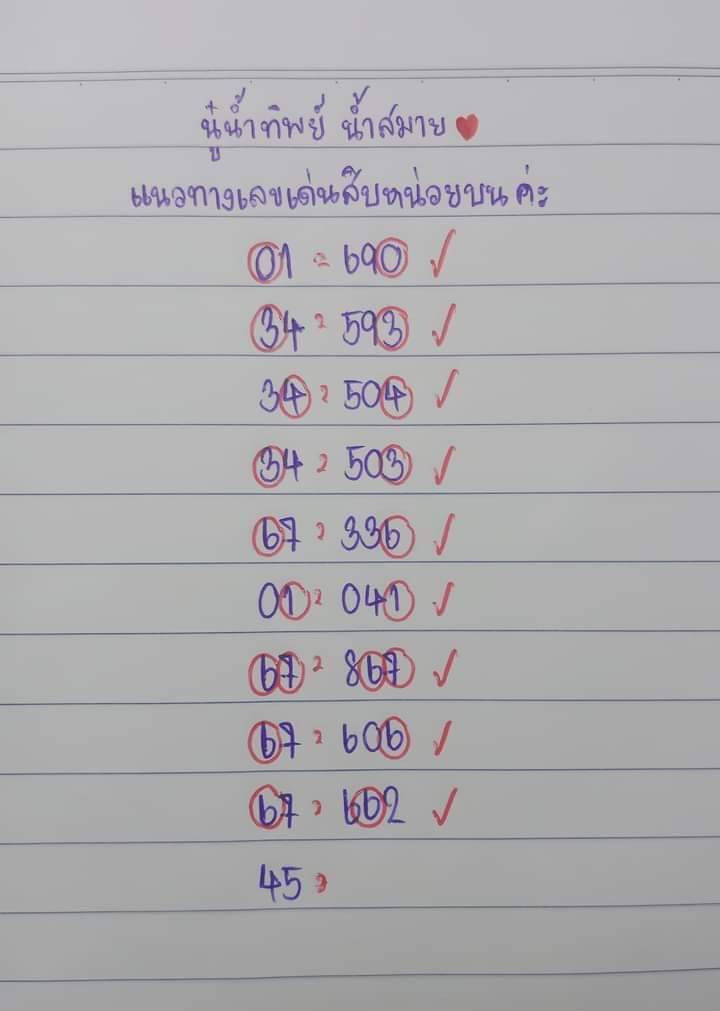 นู๋น้ำทิพย์ น้ำสมาย ❤
แนวทางเลขเด่นสิบหน่วยบน ค่ะ
01 = 690 ✓
34 = 593 ✓
34 = 504 ✓
34 = 503 ✓
67 = 336 ✓
01 = 041 ✓
67 = 867 ✓
67 = 606 ✓
67 = 662 ✓
45 =